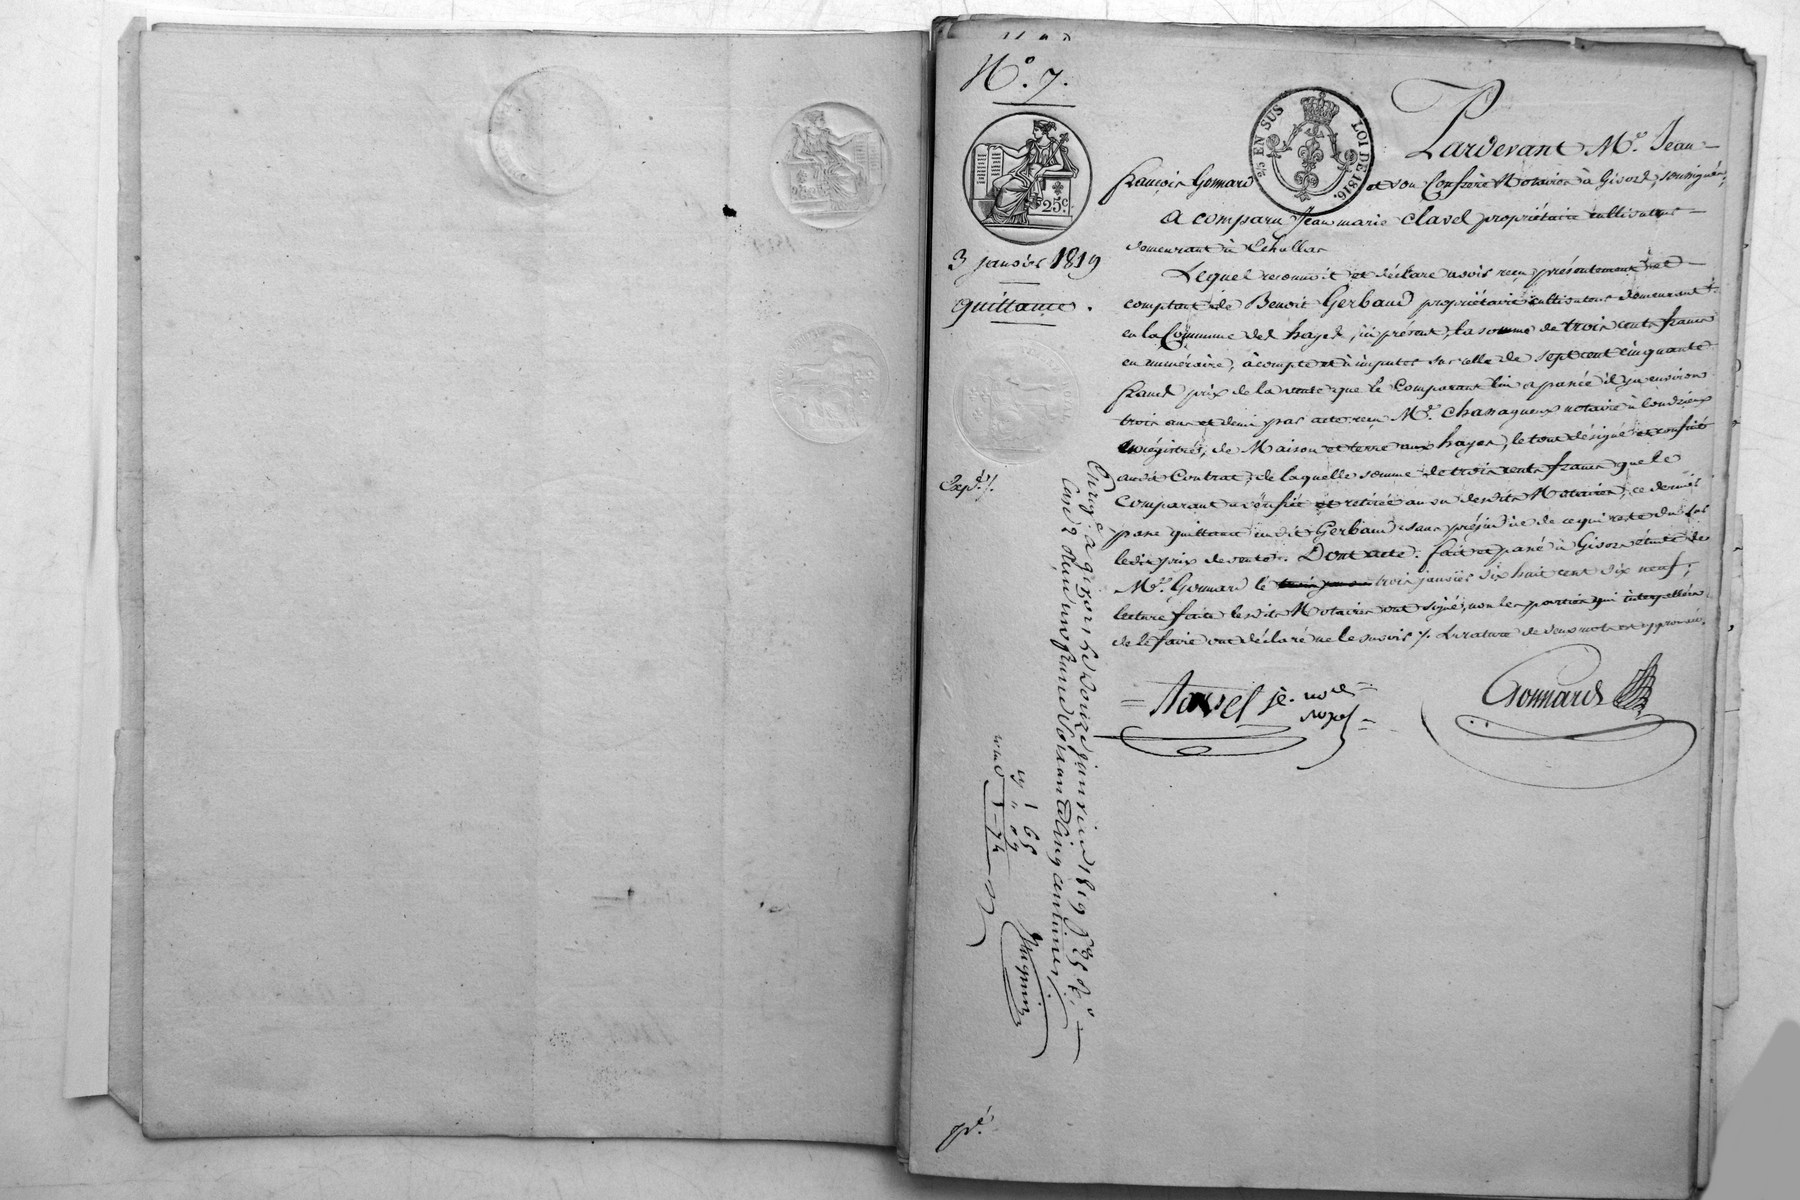 N.º 7.
25 EN SUS
LOI DE 1816.
25.c
3 janvier 1819
quittance.
Expé. /.
Pardevant Me. Jean
françois Gonnard et son Confrère Notaires à Givors, soussignés;
A comparu Jean marie Clavel propriétaire cultivateur
demeurant à Echallas
Lequel reconnoit et déclare avoir reçu présentement et
comptant de Benoit Gerbaud propriétaire cultivateur demeurant
en la Commune des hayes, ici présent, la somme de trois cents francs
en numéraire, àcompte et à imputer sur celle de sept cent cinquante
francs prix de la vente que le Comparant lui a passée il y a environ
trois ans et demi par acte reçu Me. Chassagneux notaire à Condrieux
enrégistré, de Maison et terre aux hayes, le tout désigné et confiné
audit Contrat; de laquelle somme de trois cents francs que le
Comparant a vérifiée et retirée au vu desdits Notaires, ce dernier
passe quittance audit Gerbaud sans préjudice de ce qui reste du sur
ledit prix de vente. Dont acte. fait et passé à Givors étude de
Me. Gonnard le trois janvier dix huit cent dix neuf;
lecture faite lesdits Notaires ont signé, non les parties qui interpellées
de le faire ont déclaré ne le savoir /. La rature de deux mots est approuvée.
Gonnard
Enrg.é à givors le douze janvier 1819 f.º 25 R.º
Case 2 Reçu un franc soixante cinq centimes
1 65
1-74